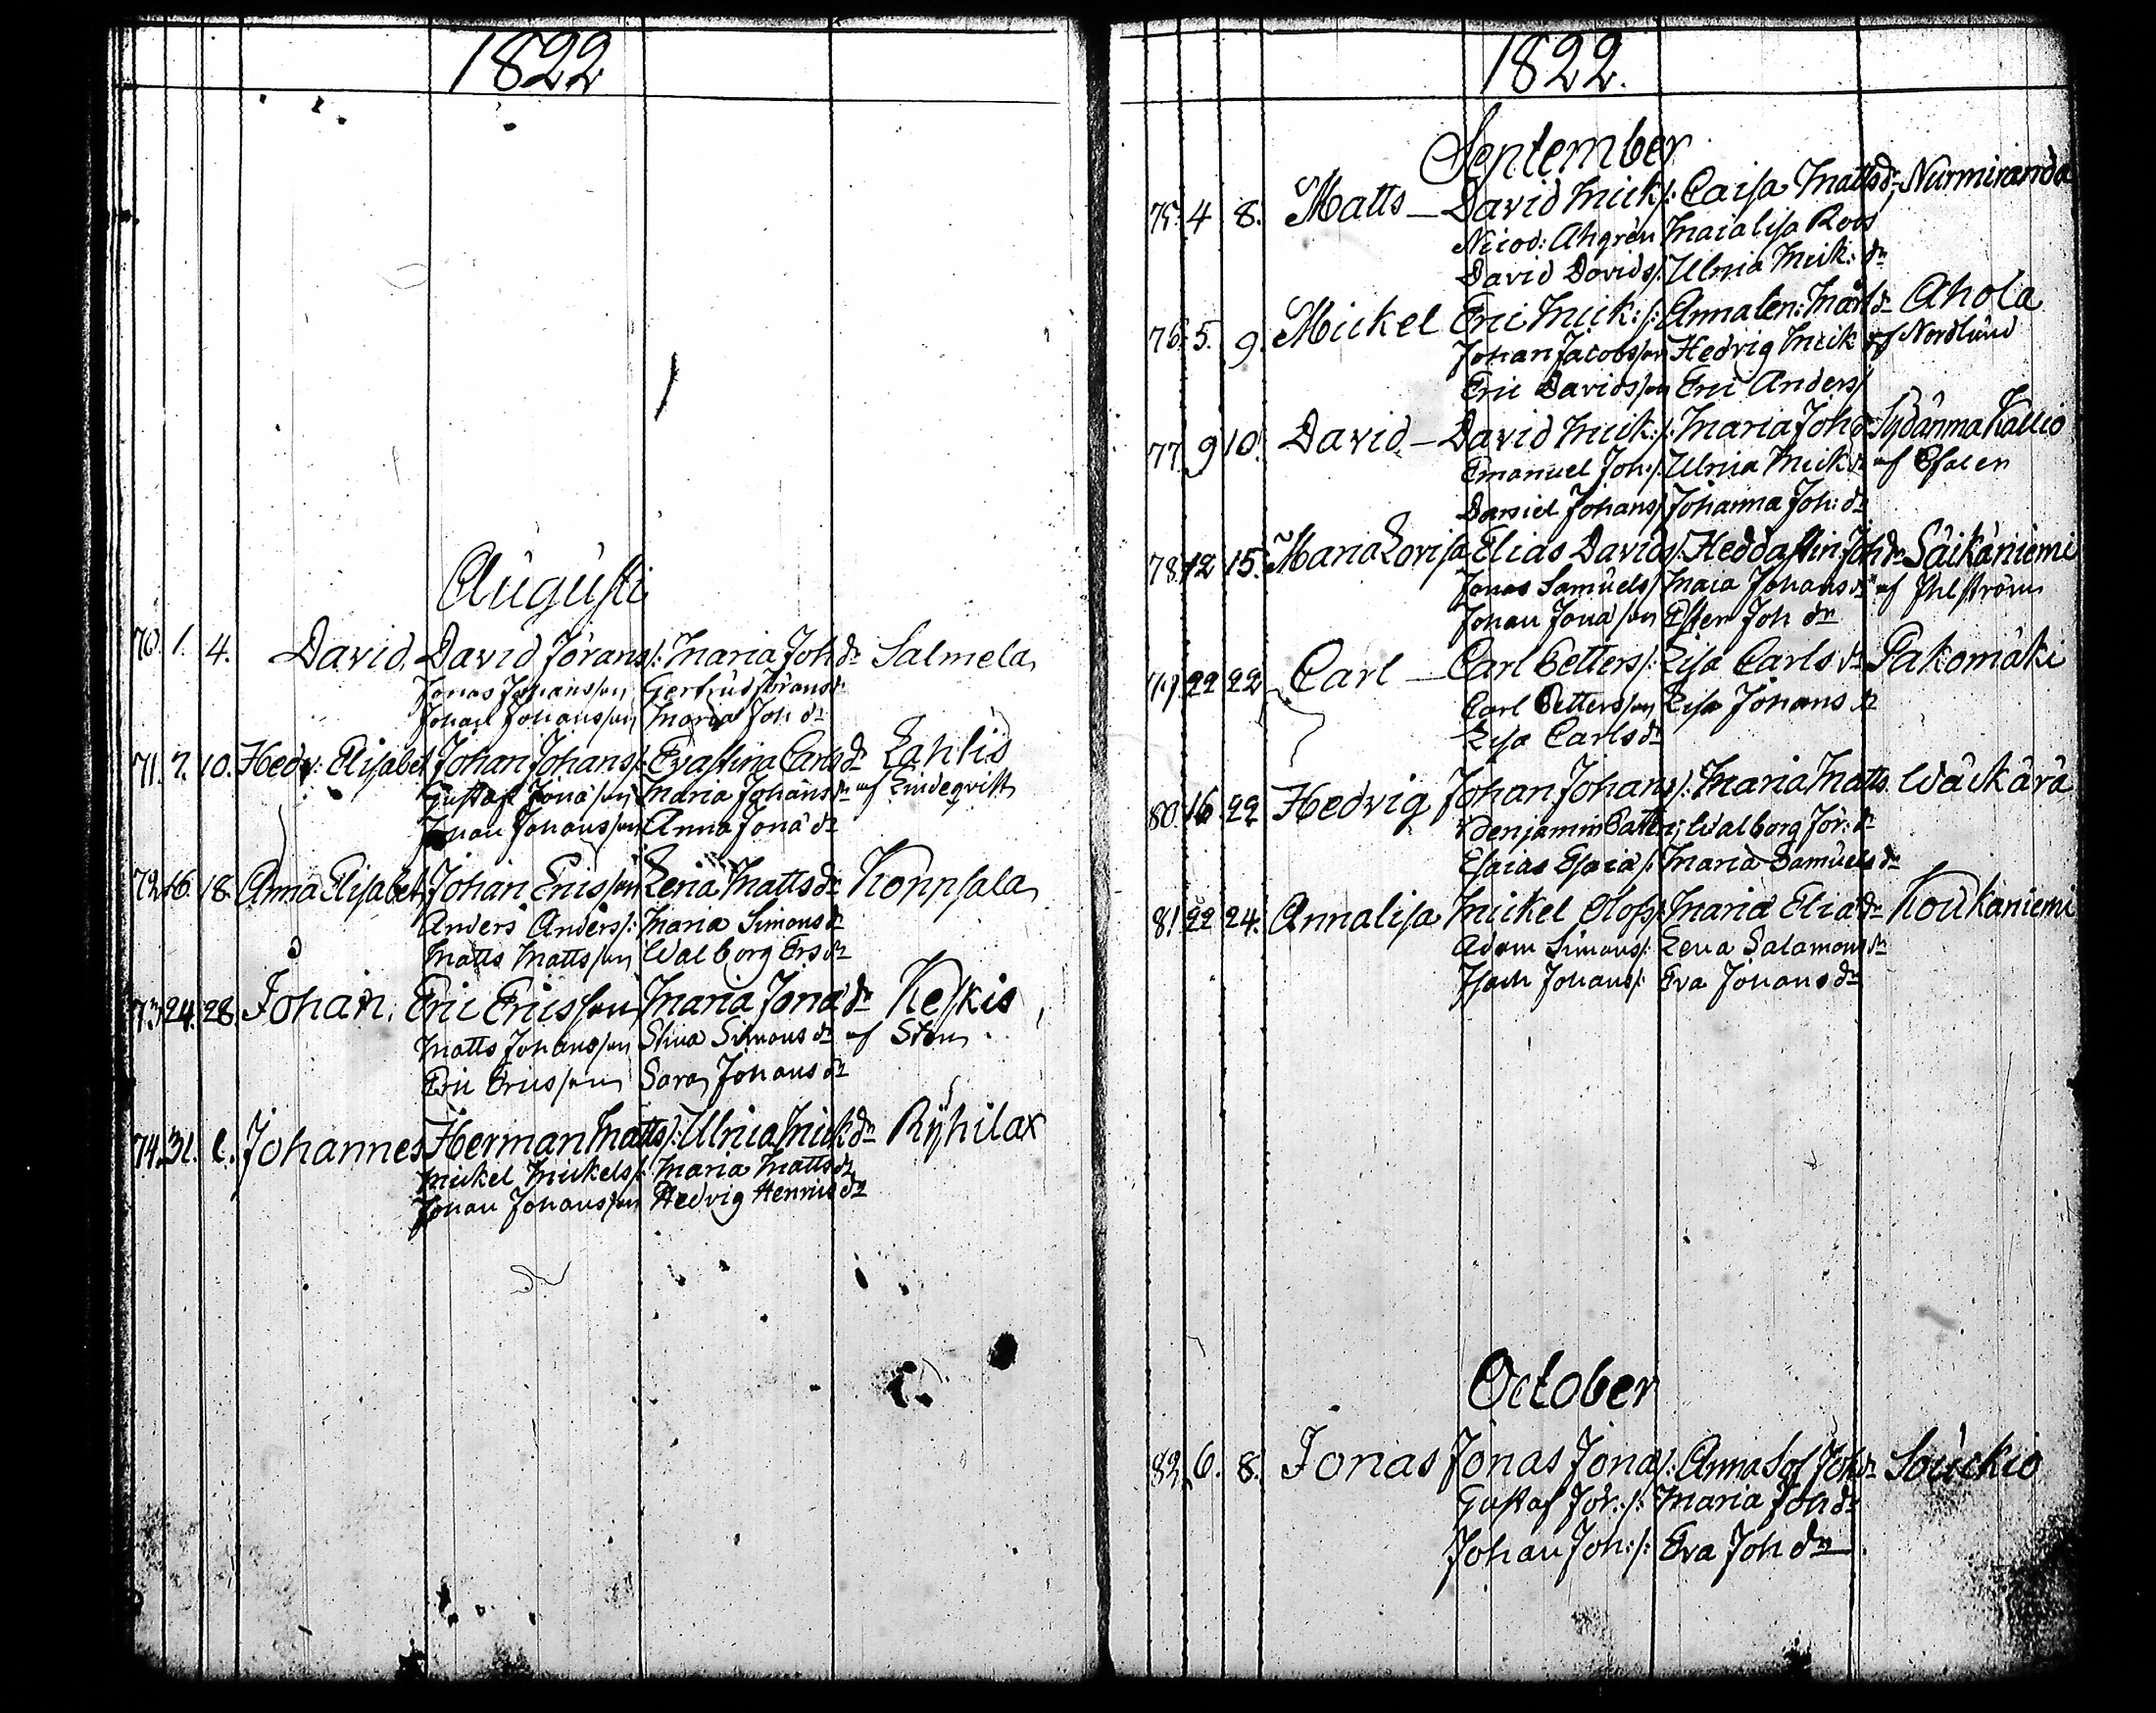 1822
Augusti
70. 1. 4. David. David Jörans/: Maria Joh dr Salmela
Jonas Johansson Gertrud Jöransdr
Johan Johansson Maria Joh dr
71. 7. 10. Hedv: Elisabet Johan Johans/: Evastina Carls dr Lahlis
Gustaf Jona son Maria Johans dr af Lindeqvist
Johan Johansson Anna Jona dr
72. 16. 18. Anna Elisabet Johan Ericsson Lena Matts dr Koppsala
Anders Anders/: Maria Simons dr
Matts Mattsson Walborg Ersdr
73. 24. 28. Johan. Eric Ericsson Maria Jona dr Keskis
Matts Johansson Stina Simons dr af Sten
Eric Ericsson Sara Johans dr
74. 31. Johannes Herman Matts/: Ulrica Mick dr Ryhilax
Mickel Mickels/: Maria Matts dr
Johan Johansson Hedvig Henrics dr
1822.
September
75. 4 8. Matts — David Mick/: Caisa Matts dr Nurmiranda
Nicod: Ahgren Maialisa Roos
David Davids/: Ulrica Mick: dr
76. 5. 9. Mickel Eric Mick:/: Annalen: Mårt dr Ahola
Johan Jacobsson Hedvig Mick af Nordlund
Eric Davidsson Eric Anders/
77 9 10. David — David Mick:/: Maria Joh dr Sydänma Kallio
Emanuel Joh:/: Ulrica Mick dr af
Daniel Johans/ Johanna Joh: dr
78. 12 15. Maria Lovisa Elias Davids/: Hedda Stin Joh dr Säikäniemi
Jonas Samuels/ Maia Johans dr af Ihlström
Johan Jona son Ester Joh dr
79 22 22 Carl — Carl Petters/: Lisa Carls dr Pakomäki
Carl Pettersson Lisa Johans dr
Lisa Carls dr
80. 16 22 Hedvig Johan Johans/: Maria Matts. Wäckärä
Benjamin Walborg Jör: dr
Esaias Esaia/: Maria Samuels dr
81 22 24. Annalisa Mickel Olofs/: Maria Elia dr Koukaniemi
Adam Simons/: Lena Salamons dr
Isach Johans/: Eva Johans dr
October
82. 6. 8. Jonas Jonas Jona/: Anna Sof Joh dr Souckio
Gustaf Jör:/: Maria Joh dr
Johan Joh:/: Eva Joh dr